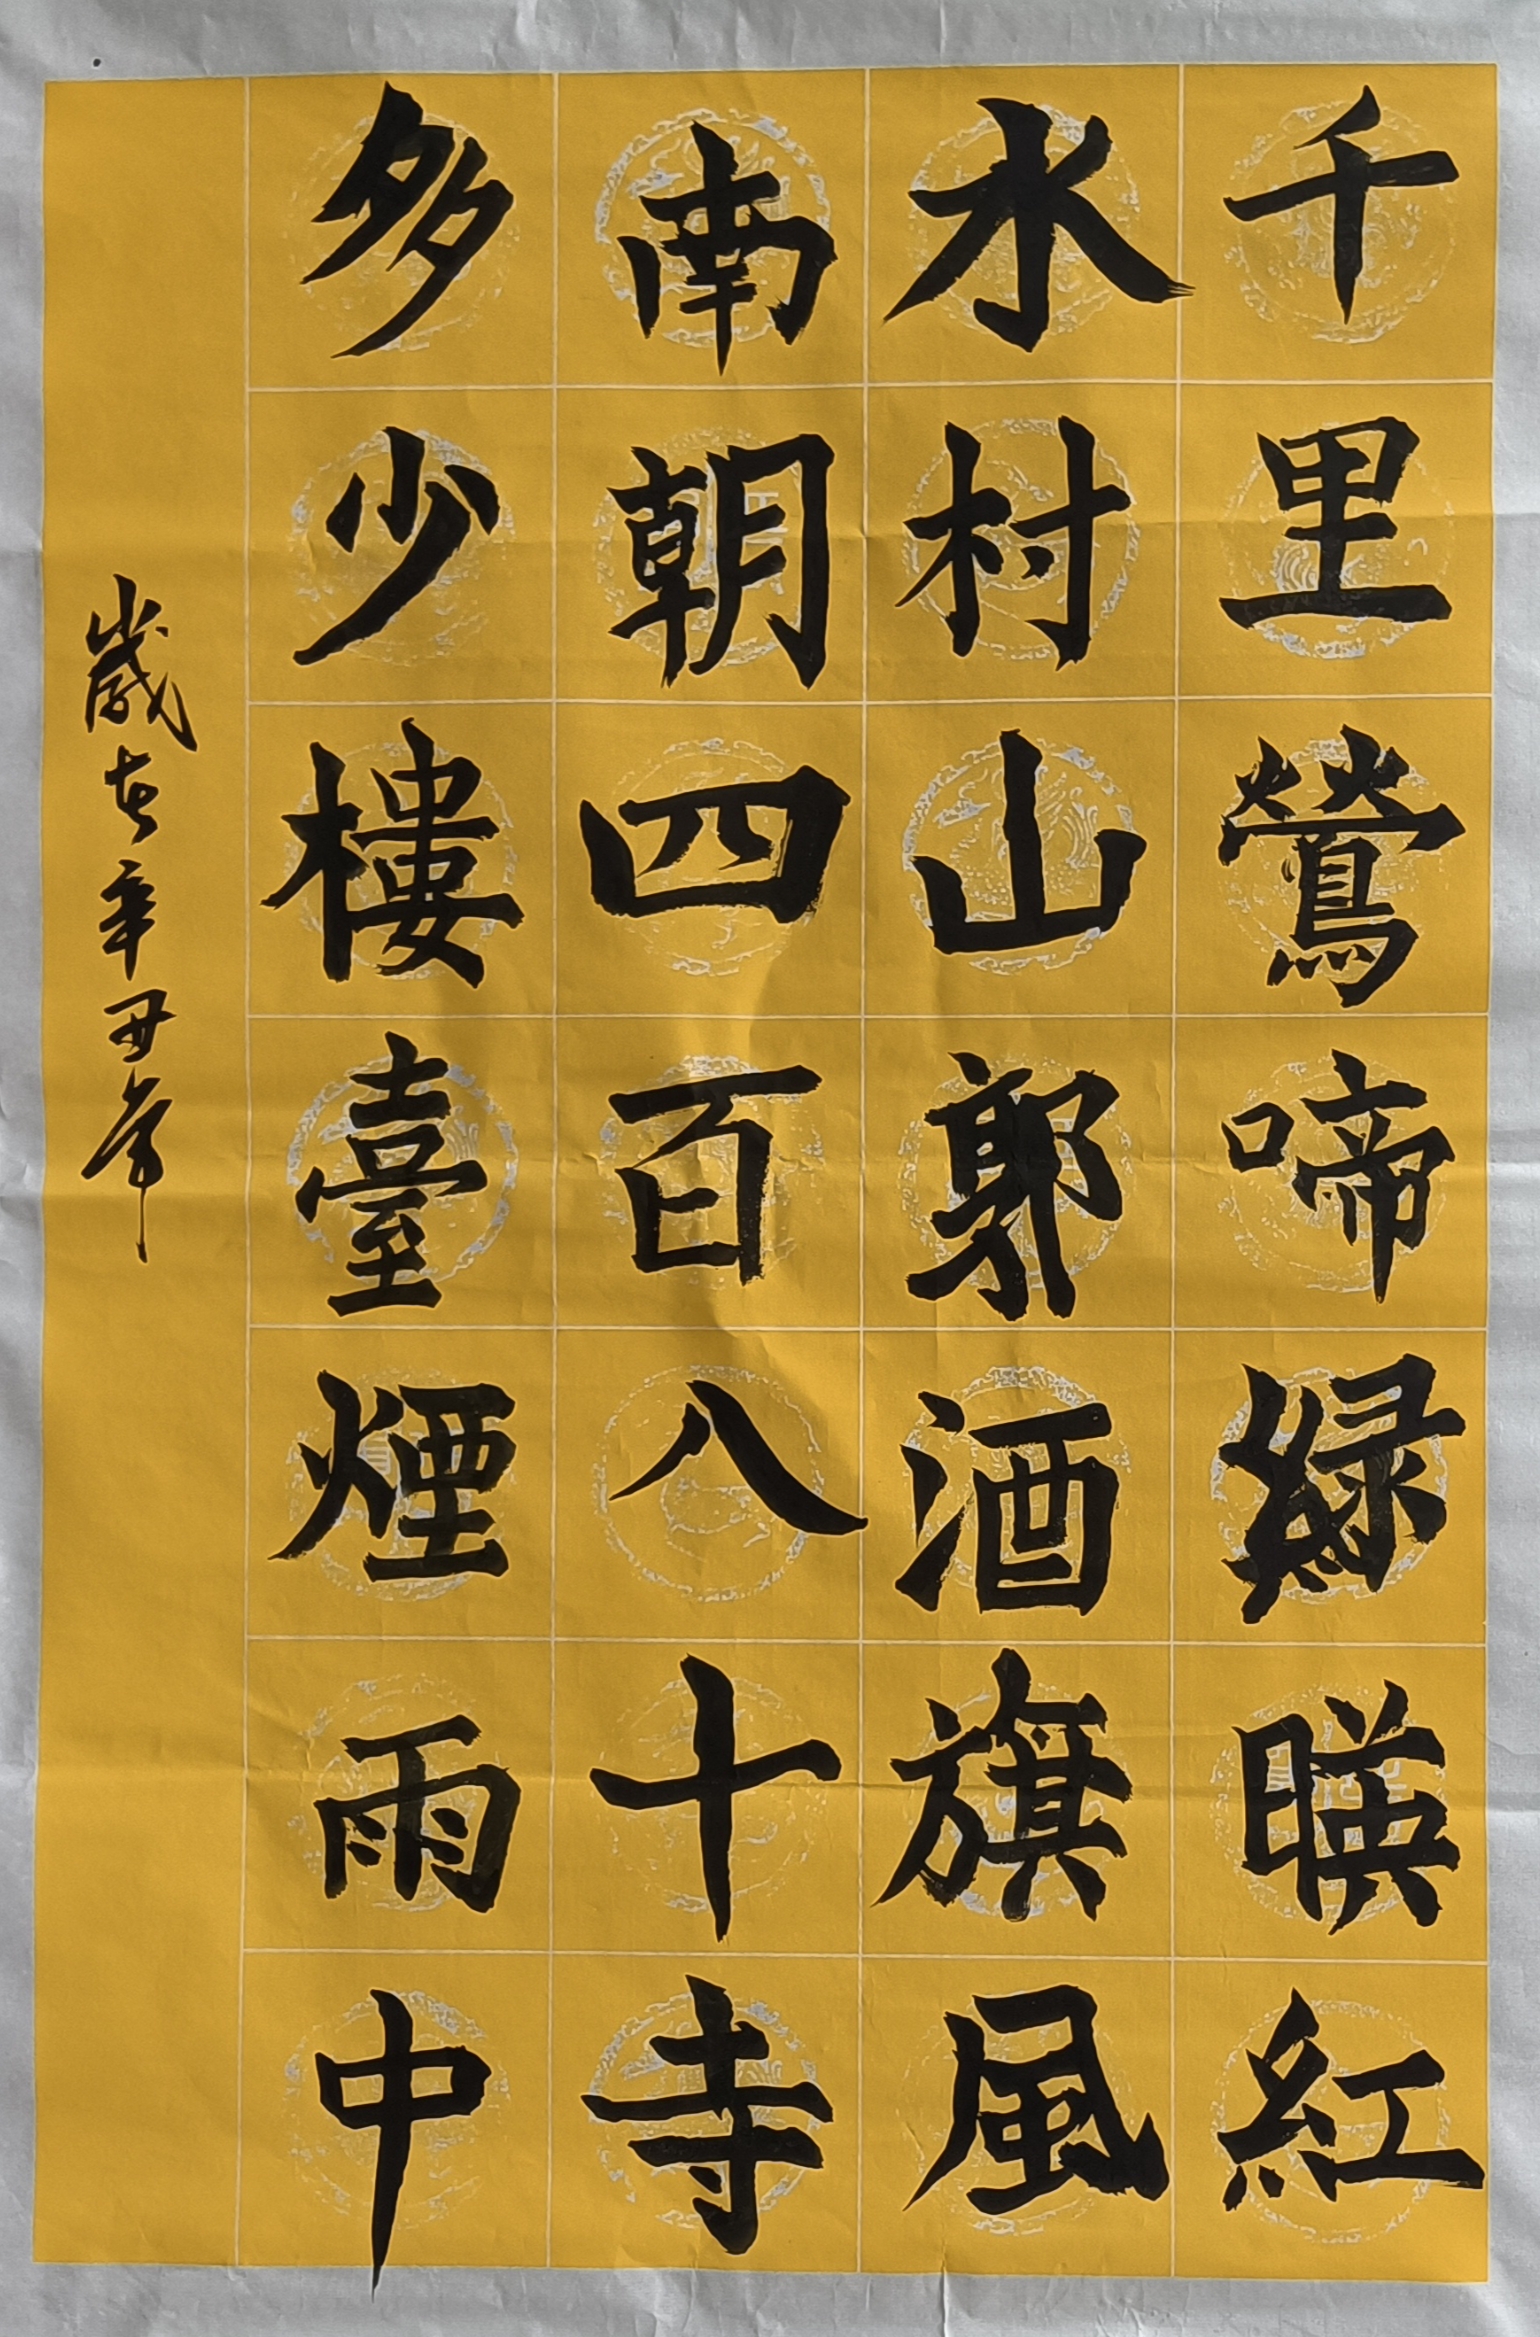 千里鶯啼緑暎紅
水村山郭酒旗風
南朝四百八十寺
多少樓臺煙雨中
歲在辛丑年